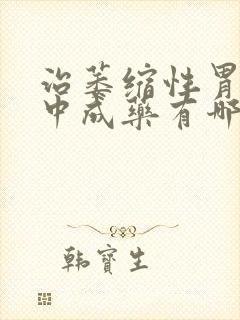 治萎缩性胃
中成藥有哪
韩寶生